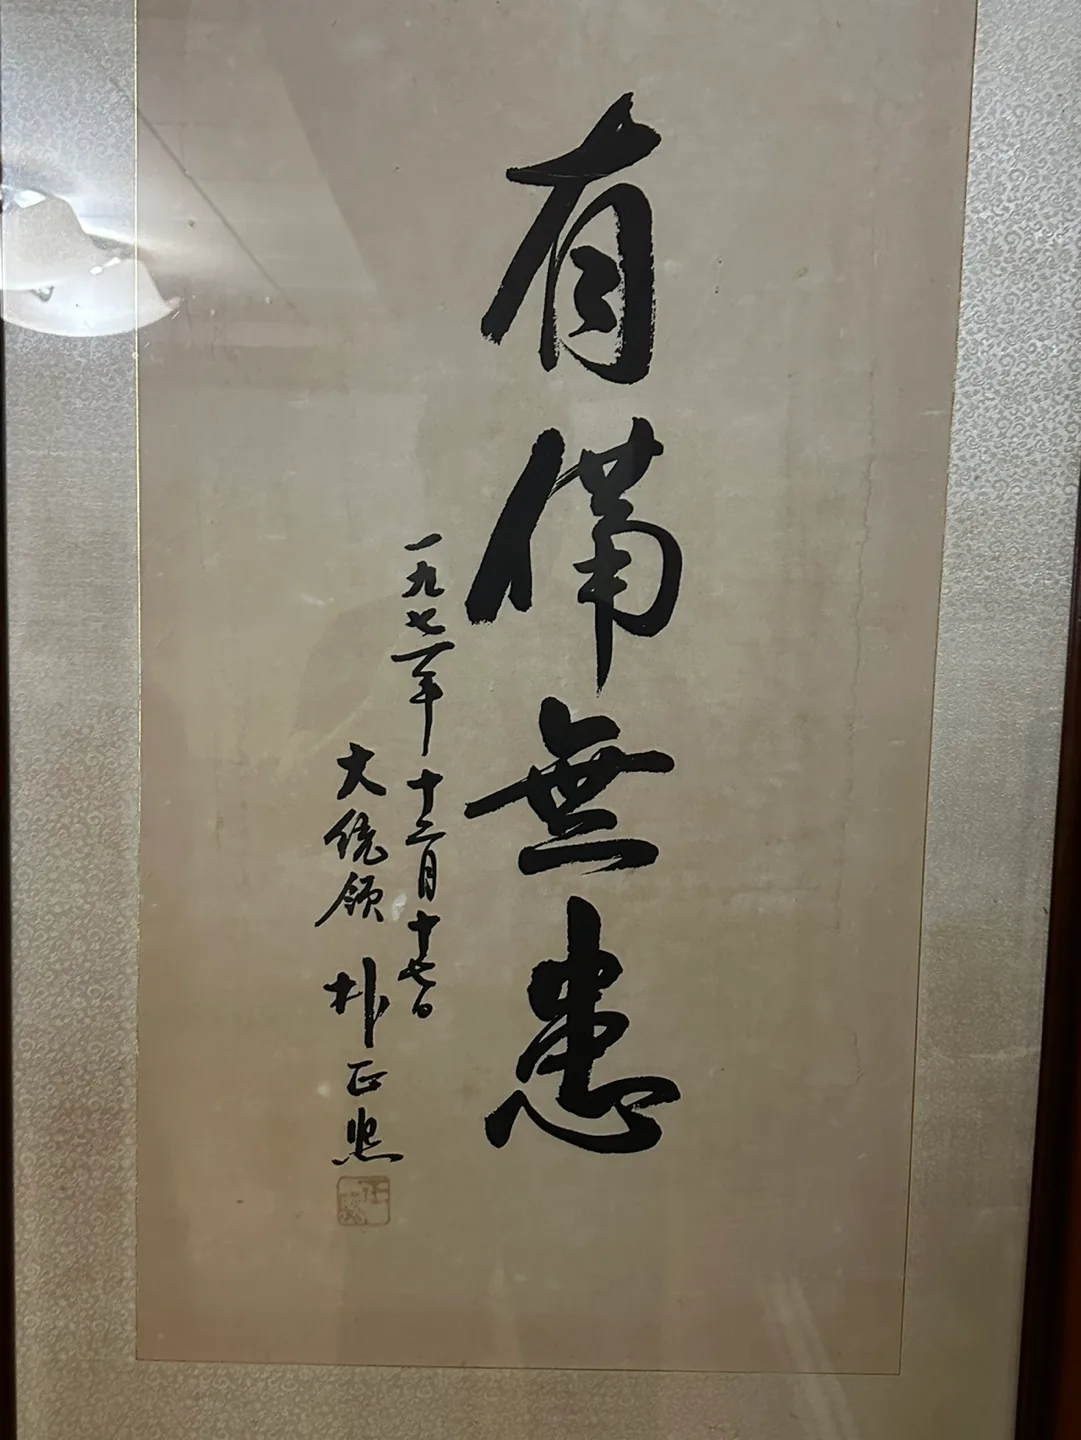 有備無患
一九七二年 十二月十七日
大統領 朴正熙